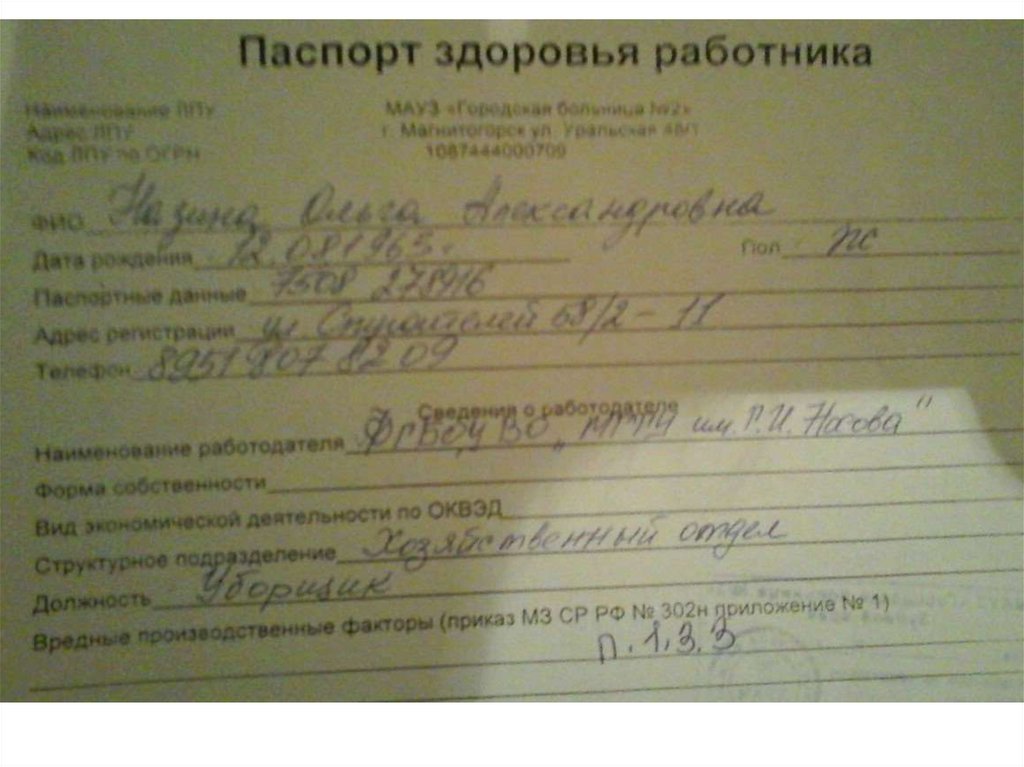 Паспорт здоровья работника
Наименование ЛПУ МАУЗ «Городская больница №2»
Адрес ЛПУ г. Магнитогорск ул. Уральская 48/1
Код ЛПУ по ОГРН 1087444000709
ФИО Назина Ольга Александровна
Дата рождения 12.081965. Пол ж
Паспортные данные 7508 278916
Адрес регистрации ул. Строителей 58/2-11
Телефон 8951 807 82 09
Сведения о работодателе
Наименование работодателя ФГБОУ ВО „МГТУ им. Г.И. Носова"
Форма собственности
Вид экономической деятельности по ОКВЭД
Структурное подразделение Хозяйственный отдел
Должность Уборщик
Вредные производственные факторы (приказ МЗ СР РФ № 302н приложение № 1)
п.1.3.3